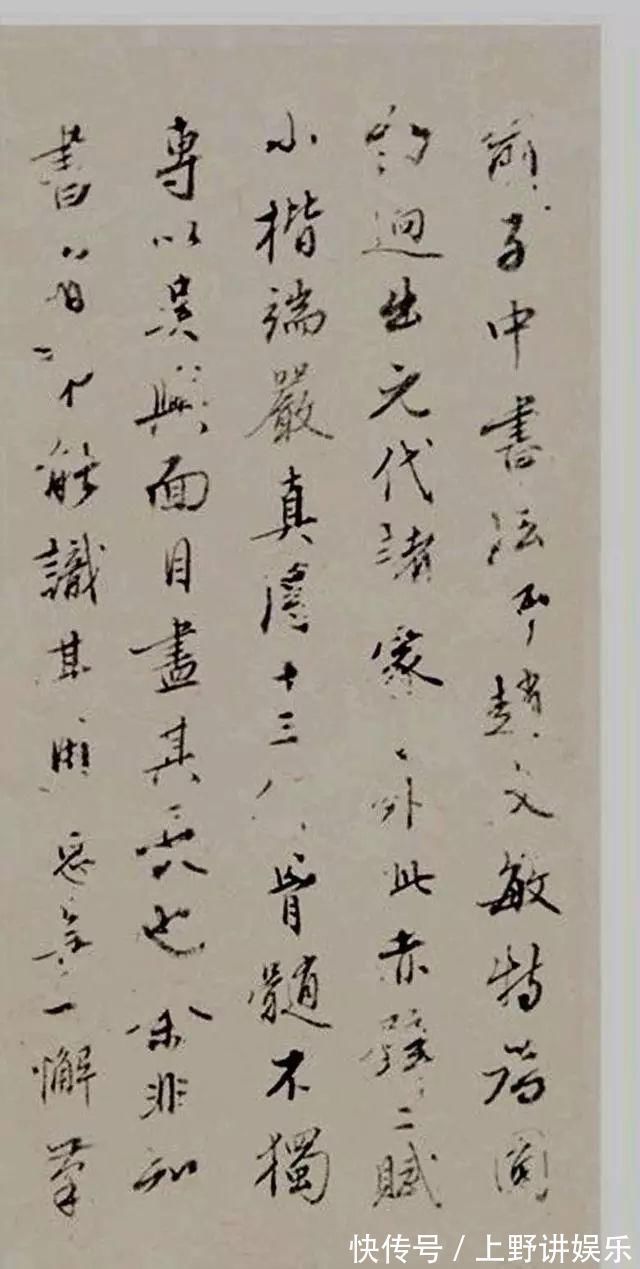 俞子中書法師趙文敏特為圓
勁迥出元代諸家之外此赤壁二賦
小楷端嚴真得十三行骨髓不獨
專以吳興面目盡其長也余非知
書者亦能識其用意無一懈筆
快传号 / 上野讲娱乐